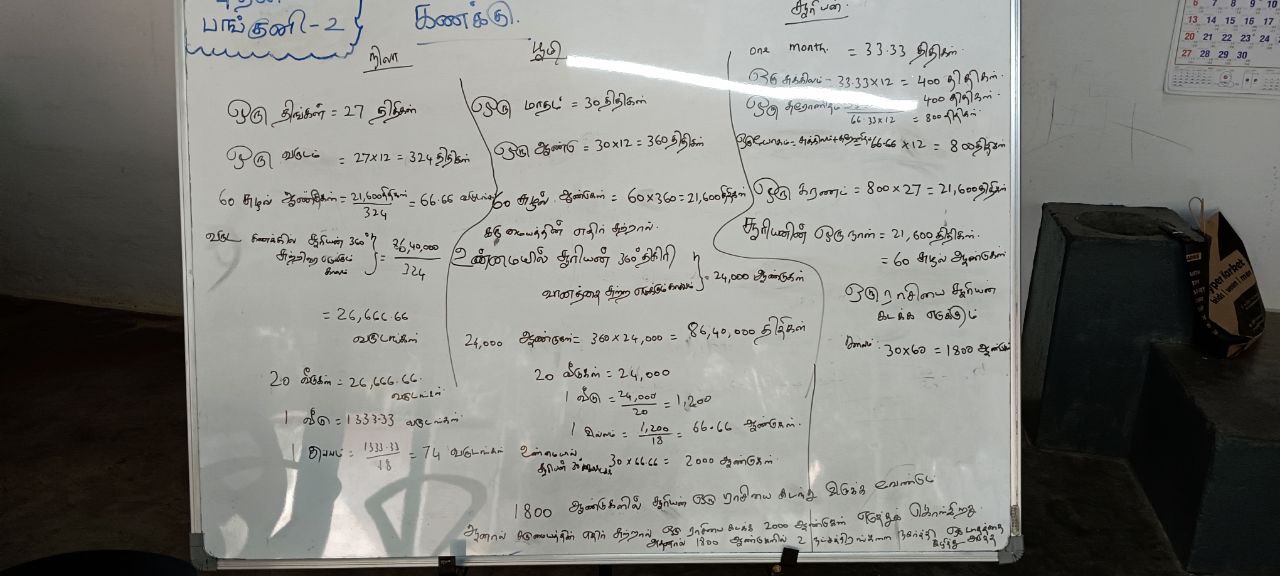 பங்குனி-2
கணக்கு.
நிலா
ஒரு திங்கள் = 27 திதிகள்
ஒரு வருடம் = 27x12 = 324 திதிகள்
60 சுழல் ஆண்டுகள் = 21,600 திதிகள் / 324 = 66.66
கணக்கில் சூரியன் 360°
= 86,40,000 / 324
= 26,666.66
வருடங்கள்
20 வீடுகள் = 26,666.66.
1 வீடு = 1333.33 வருடங்கள்
1 = 1333.33 / 18 = 74 வருடங்கள்
பூமி
ஒரு மாதம் = 30 திதிகள்
ஒரு ஆண்டு = 30x12 = 360 திதிகள்
60 சுழல் ஆண்டுகள் = 60x360 = 21,600 திதிகள்
கரு மையத்தின் எதிர் சுற்றால்.
உண்மையில் சூரியன் 360 திகிரி
வானத்தை சுற்ற எடுக்கும் காலம் } = 24,000 ஆண்டுகள்
24,000 ஆண்டுகள் = 360 x 24,000 = 86,40,000 திதிகள்
20 வீடுகள் = 24,000
1 வீடு = 24,000 / 20 = 1,200
1 = 1,200 / 18 = 66.66 ஆண்டுகள்.
உண்மையில்
சூரியன் 30 30 x 66.66 = 2000 ஆண்டுகள்
சூரியன்.
one month = 33.33 திதிகள்.
ஒரு 33.33x12 = 400 திதிகள்.
ஒரு 400 திதிகள்.
66.33x12 = 800 திதிகள்.
66.66 x 12 = 800 திதிகள்
ஒரு கரணம் = 800 x 27 = 21,600 திதிகள்
சூரியனின் ஒரு நாள் = 21,600 திதிகள்.
= 60 சுழல் ஆண்டுகள்
ஒரு ராசியை சூரியன்
கடக்க எடுக்கும்
காலம். 30x60 = 1800 ஆண்டு
1800 ஆண்டுகளில் சூரியன் ஒரு ராசியை கடந்து இருக்க வேண்டும்
ஆனால் கருமையத்தின் எதிர் சுற்றால் ஒரு ராசியை கடக்க 2000 ஆண்டுகள் எடுத்துக் கொள்கிறது.
அதனால் 1800 ஆண்டுகளில் 2 நட்சத்திரங்களை நகர்த்தி
6 7 8 9 10
13 14 15 16 17
20 21 22 23 24
27 28 29 30